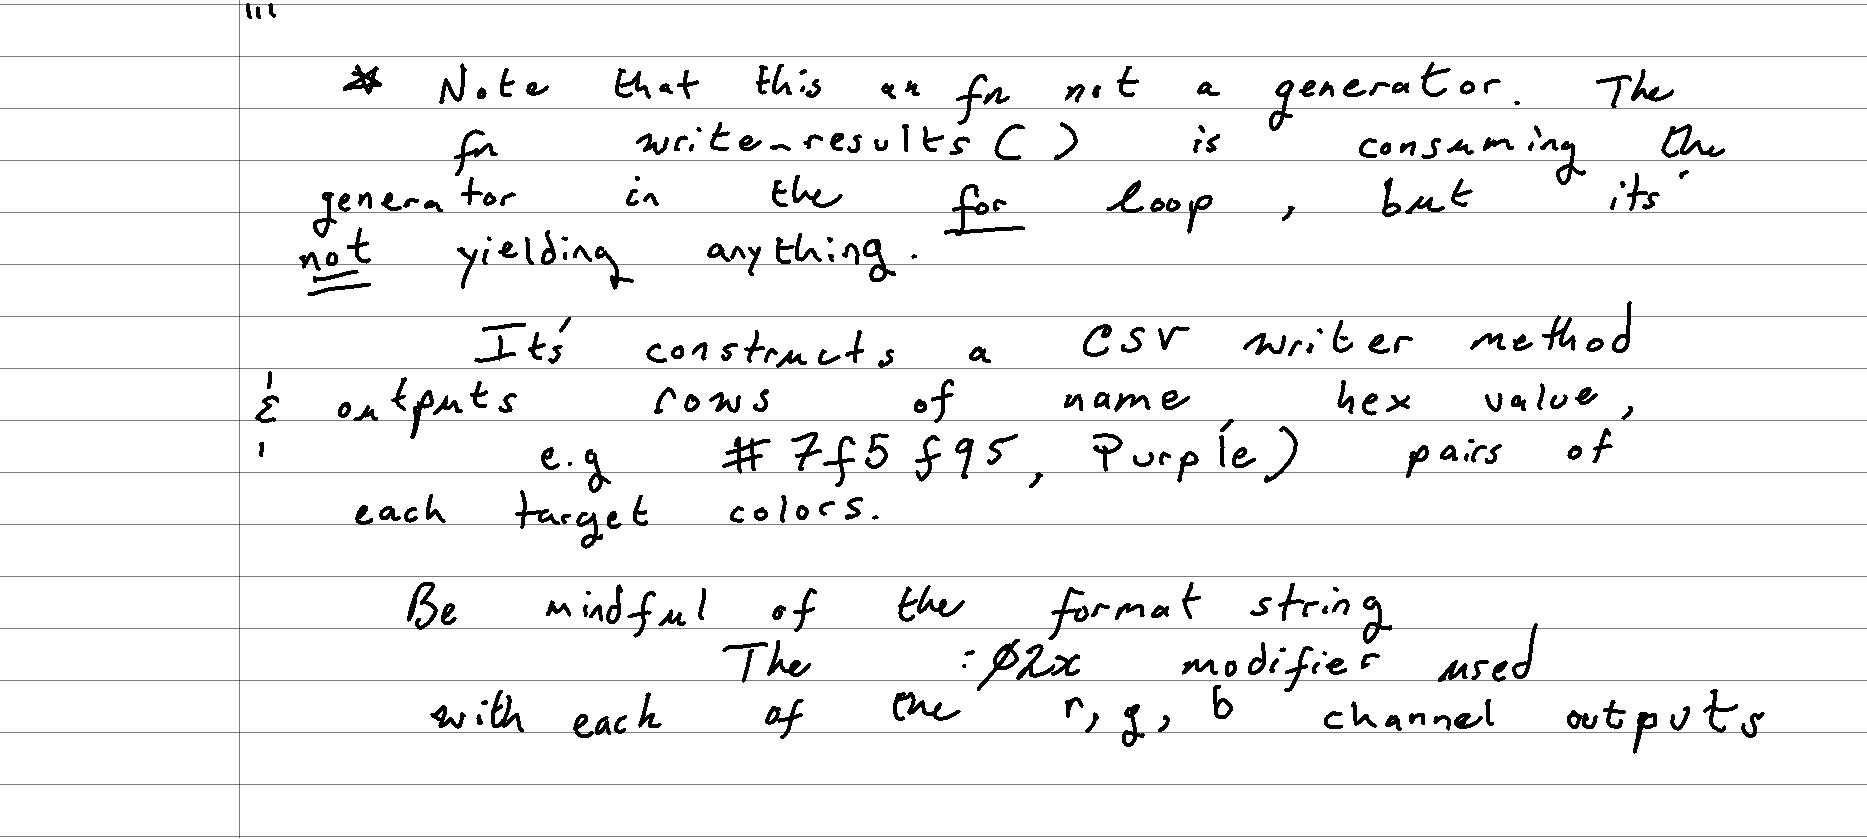 * Note that this an fn not a generator. The
fn write_results() is consuming the
generator in the for loop, but its'
not yielding anything.
It's constructs a CSV writer method
& outputs rows of name, hex value,
e.g #7f5f95, Purple) pairs of
each target colors.
Be mindful of the format string
The :02x modifier used
with each of the r, g, b channel outputs